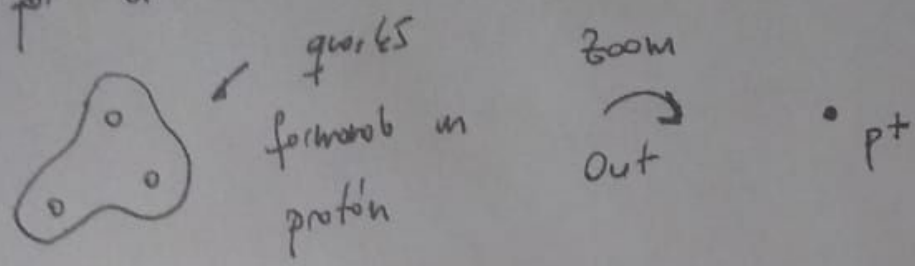 quarks
formando un
protón
Zoom
Out
p+